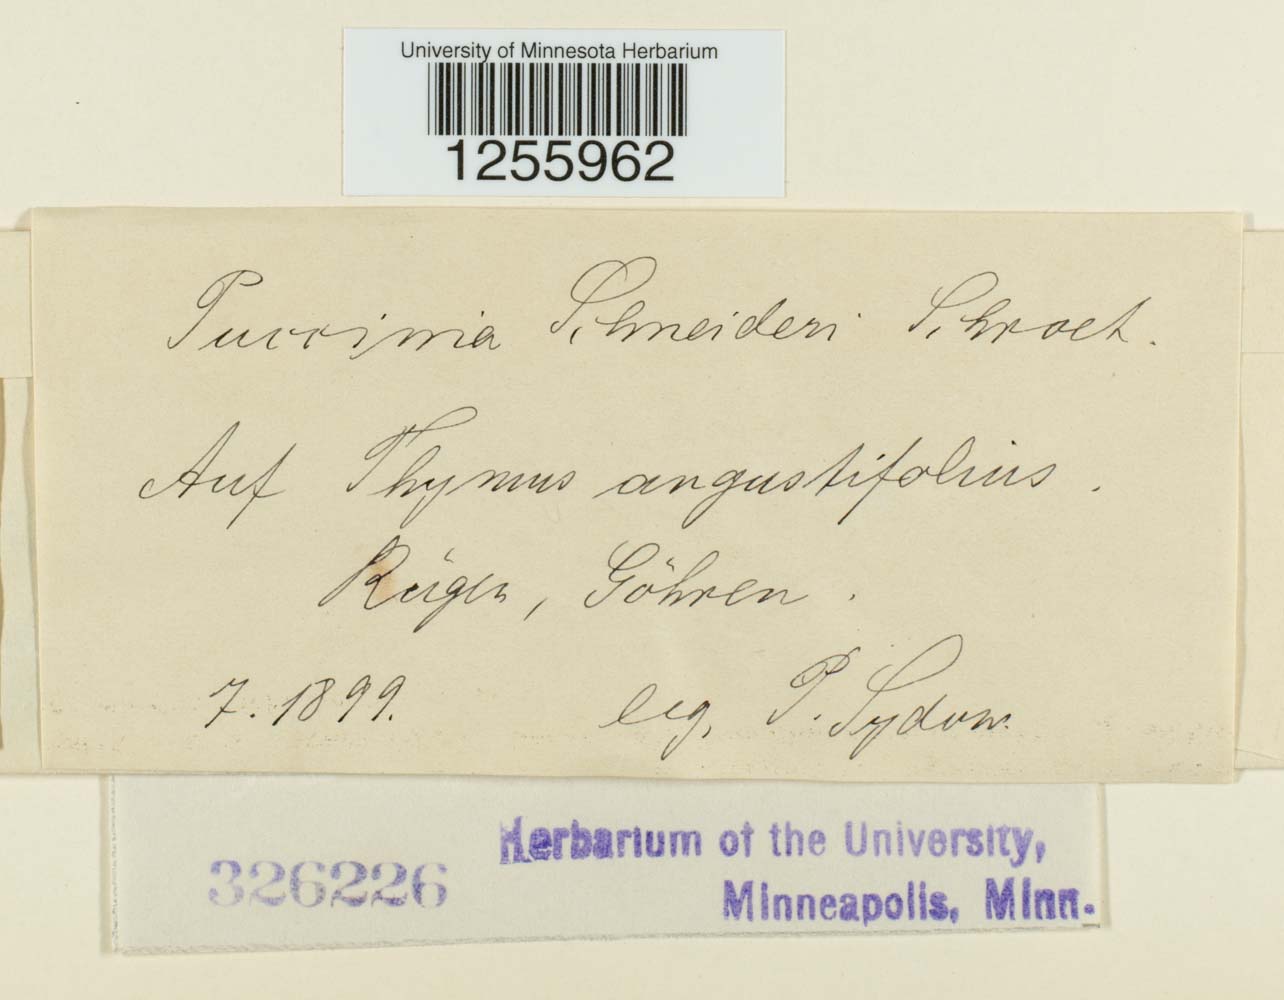 University of Minnesota Herbarium
1255962
Puccinia Schneideri Schroet.
Auf Thymus angustifolius.
Rügen, Göhren.
7. 1899. leg. P. Sydow.
Herbarium of the University,
326226
Minneapolis, Minn.